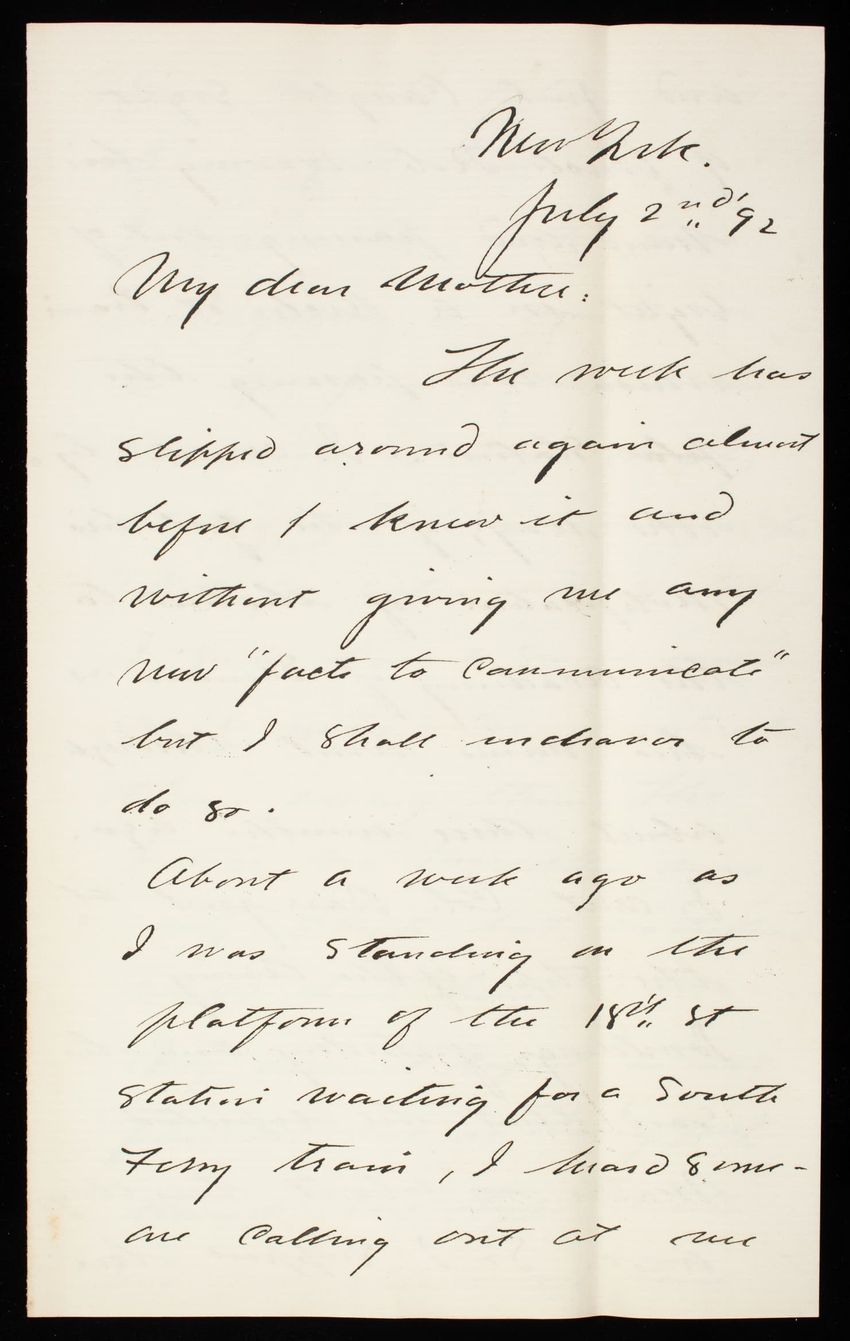 New York.
July 2nd '92
My dear Mother:
The week has
slipped around again almost
before I knew it and
without giving me any
new "facts to communicate"
but I shall endeavor to
do so.
About a week ago as
I was standing on the
platform of the 18th St
station waiting for a South
Ferry train, I heard some-
one calling out at me